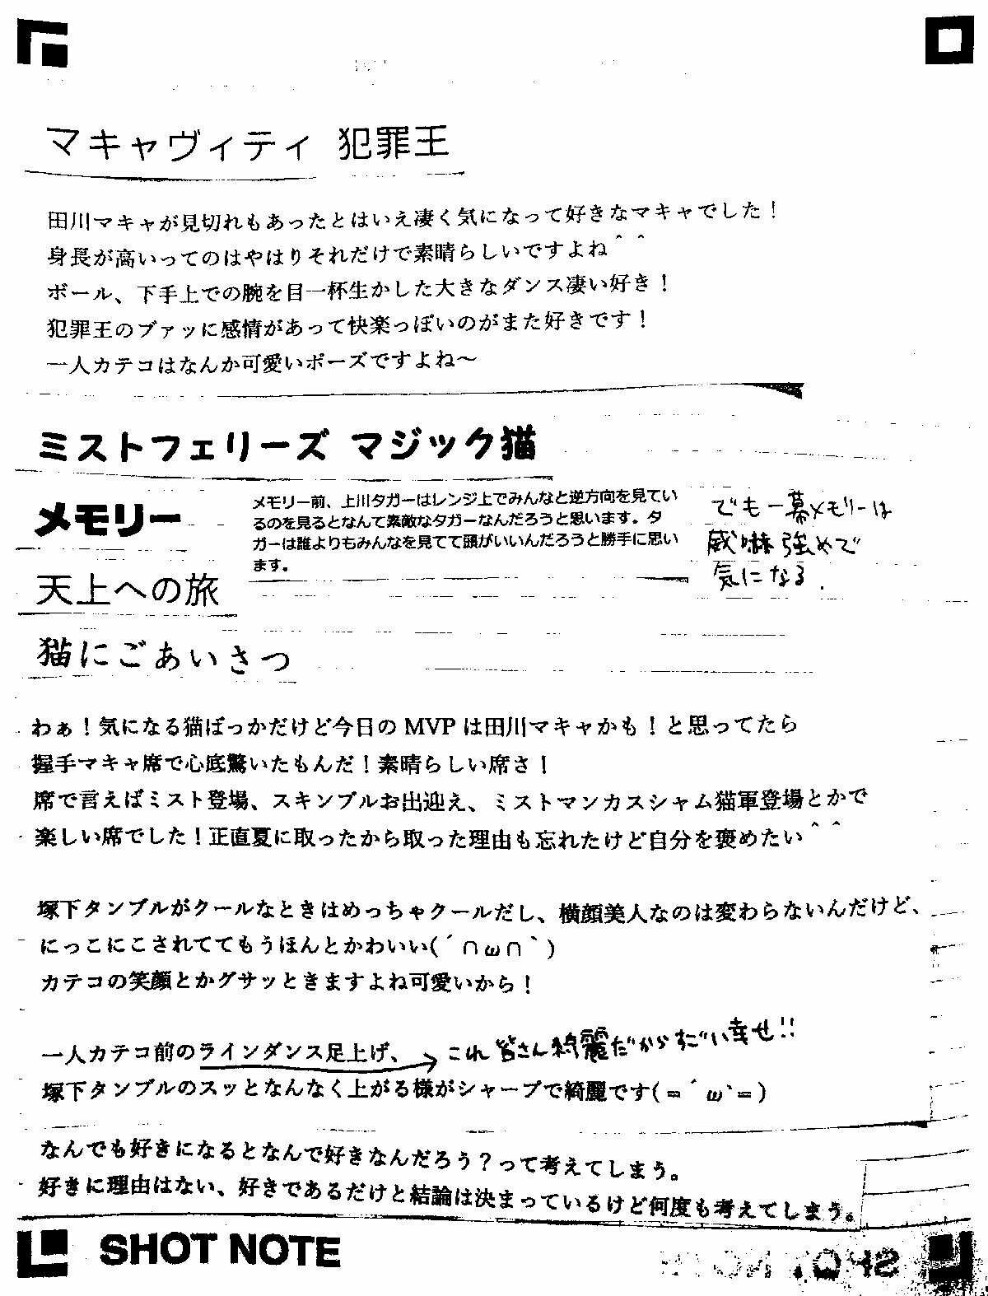 マキャヴィティ 犯罪王
田川マキャが見切れもあったとはいえ凄く気になって好きなマキャでした！
身長が高いってのはやはりそれだけで素晴らしいですよね＾＾
ボール、下手上での腕を目一杯生かした大きなダンス凄い好き！
犯罪王のブァッに感情があって快楽っぽいのがまた好きです！
一人カテコはなんか可愛いポーズですよね～
ミストフェリーズ マジック猫
メモリー
メモリー前、上川タガーはレンジ上でみんなと逆方向を見てい
るのを見るとなんて素敵なタガーなんだろうと思います。タ
ガーは誰よりもみんなを見てて頭がいいんだろうと勝手に思い
ます。
でも一幕メモリーは
威嚇強めで
気になる.
天上への旅
猫にごあいさつ
わぁ！気になる猫ばっかだけど今日の MVP は田川マキャかも！と思ってたら
握手マキャ席で心底驚いたもんだ！素晴らしい席さ！
席で言えばミスト登場、スキンブルお出迎え、ミストマンカスシャム猫軍登場とかで
楽しい席でした！正直夏に取ったから取った理由も忘れたけど自分を褒めたい＾＾
塚下タンブルがクールなときはめっちゃクールだし、横顔美人なのは変わらないんだけど、
にっこにこされててもうほんとかわいい(´∩ω∩｀)
カテコの笑顔とかグサッときますよね可愛いから！
一人カテコ前のラインダンス足上げ、→ これ皆さん綺麗だからすごい幸せ!!
塚下タンブルのスッとなんなく上がる様がシャープで綺麗です(＝´ω`＝)
なんでも好きになるとなんで好きなんだろう？って考えてしまう。
好きに理由はない、好きであるだけと結論は決まっているけど何度も考えてしまう。
SHOT NOTE
SHOT NOTE